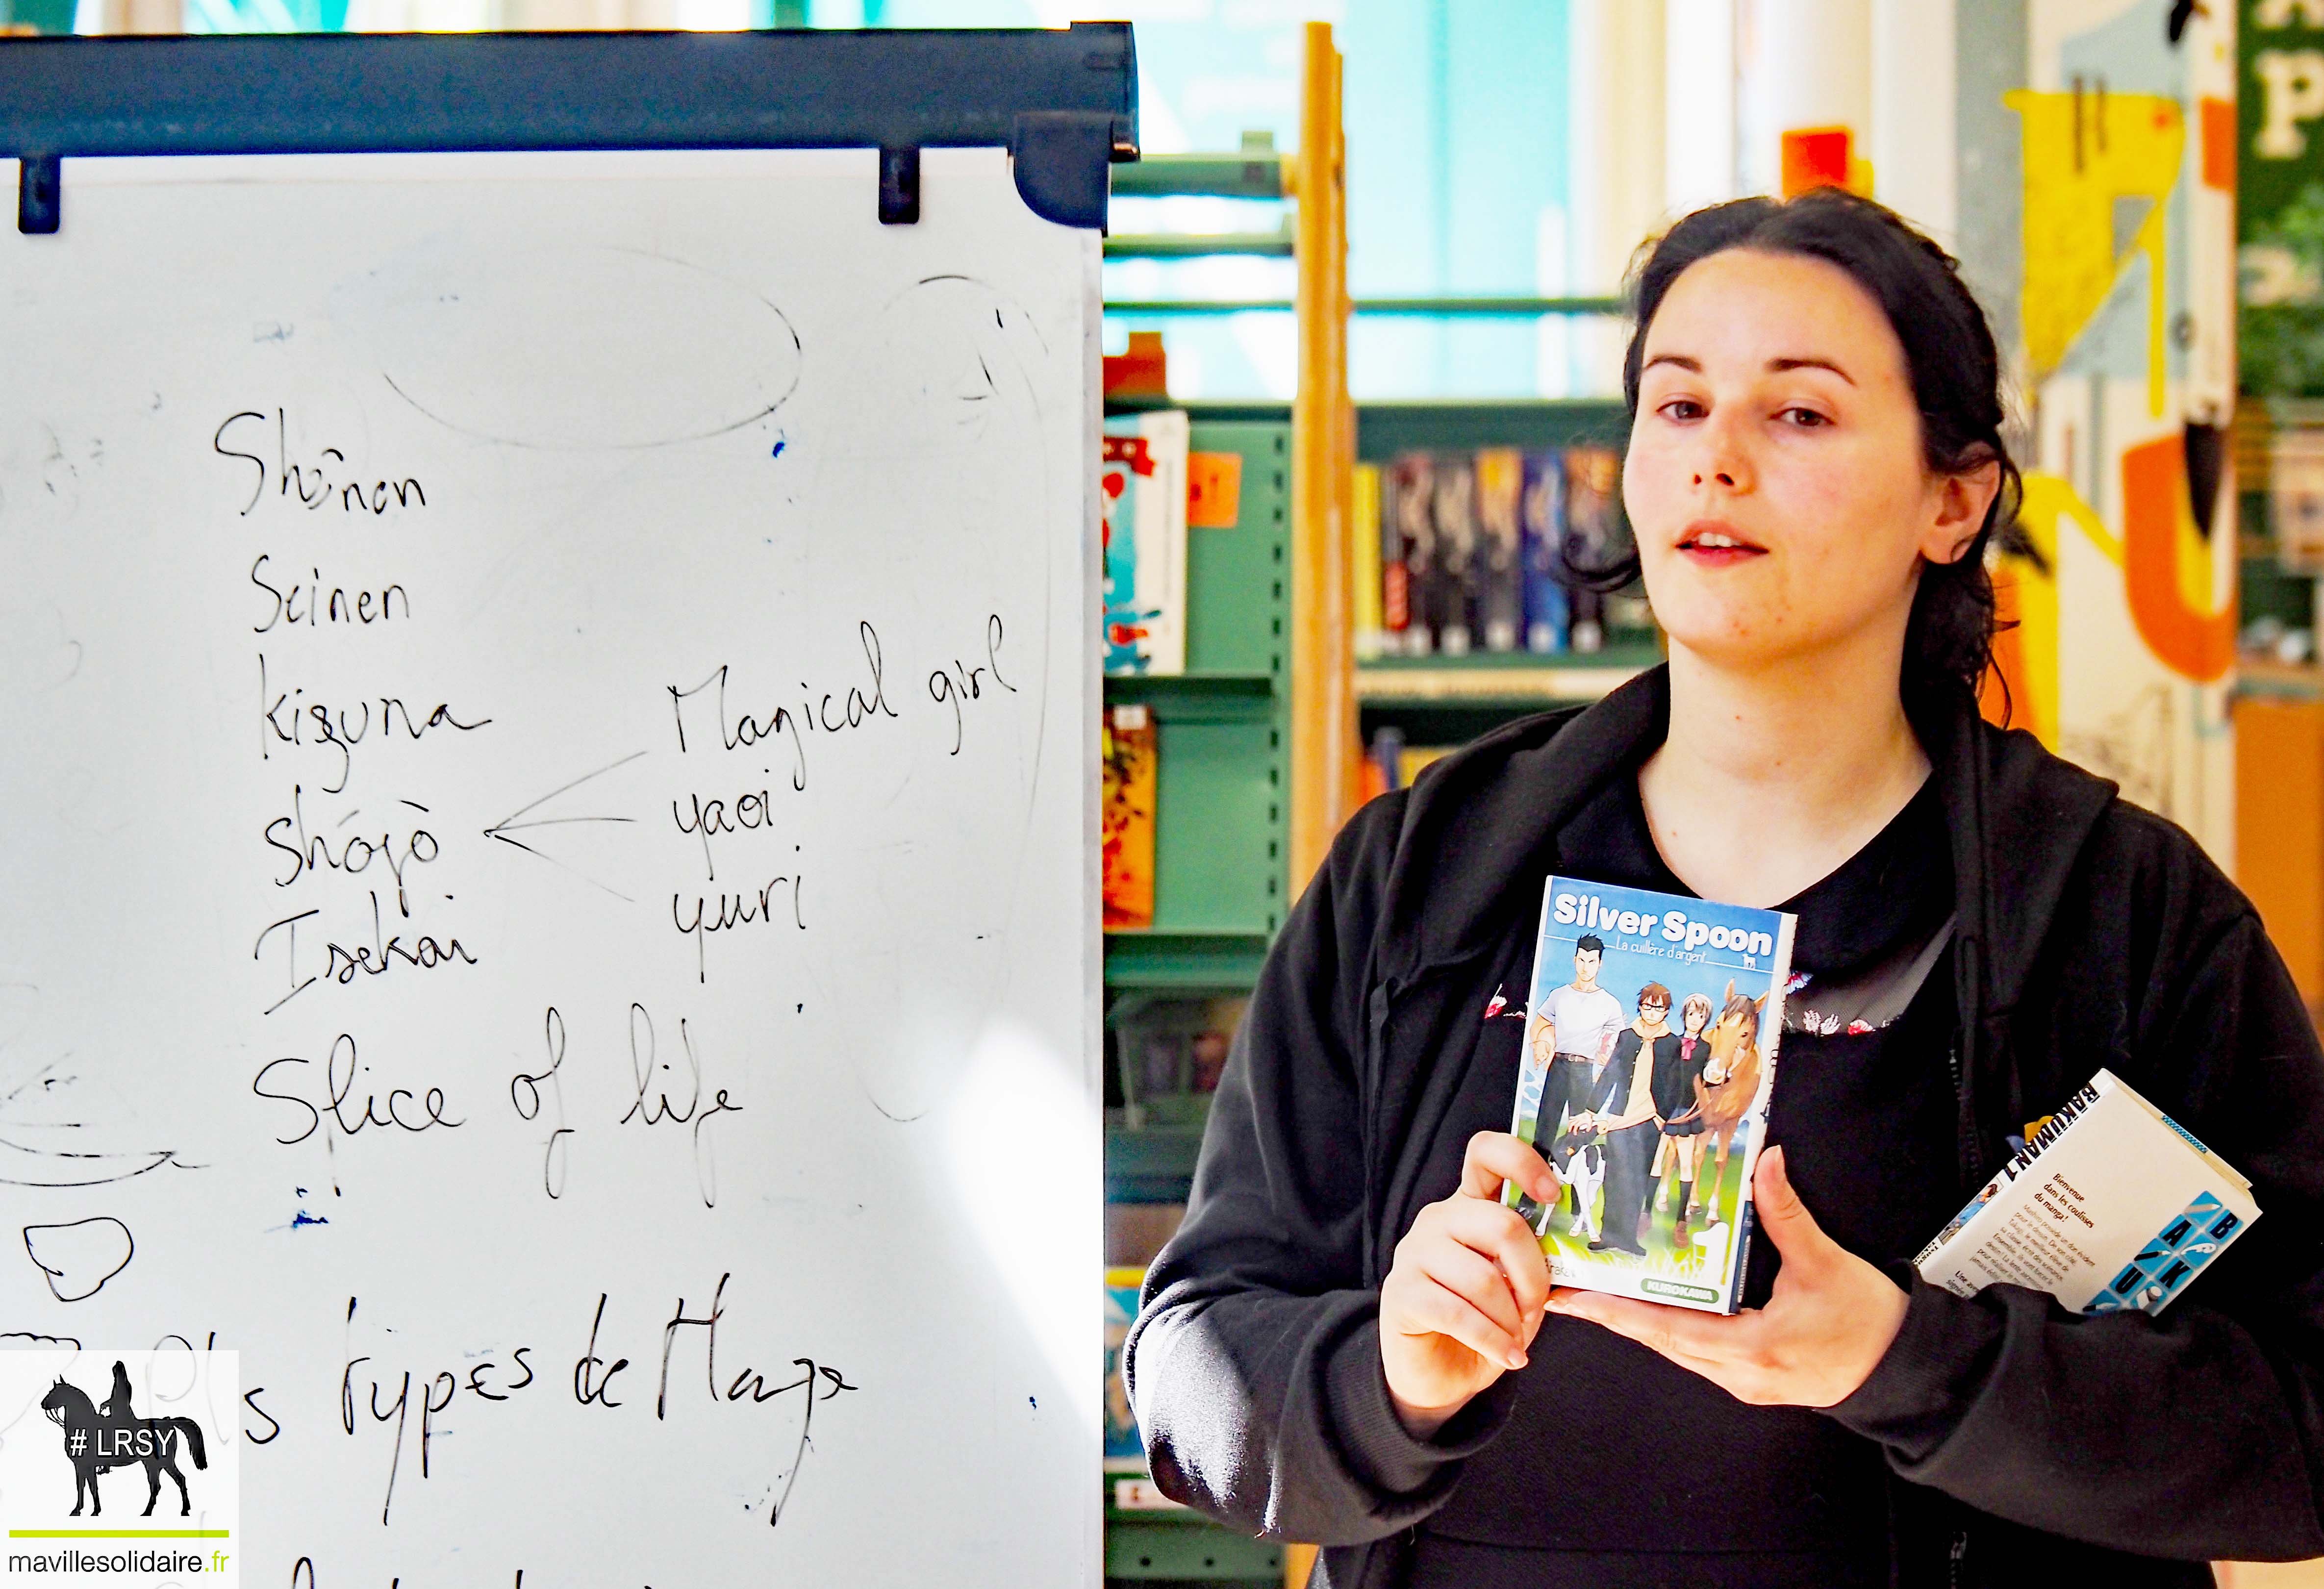 Shônen
Seinen
Kizuna
Shójò
Isekai
Magical girl
yaoi
yuri
Slice of life
types de Manga
Silver Spoon
La cuillère d'argent
1
KUROKAWA
BAKUMAN 1
Bienvenue
dans les coulisses
du manga!
BAKU
# LRSY
mavillesolidaire.fr